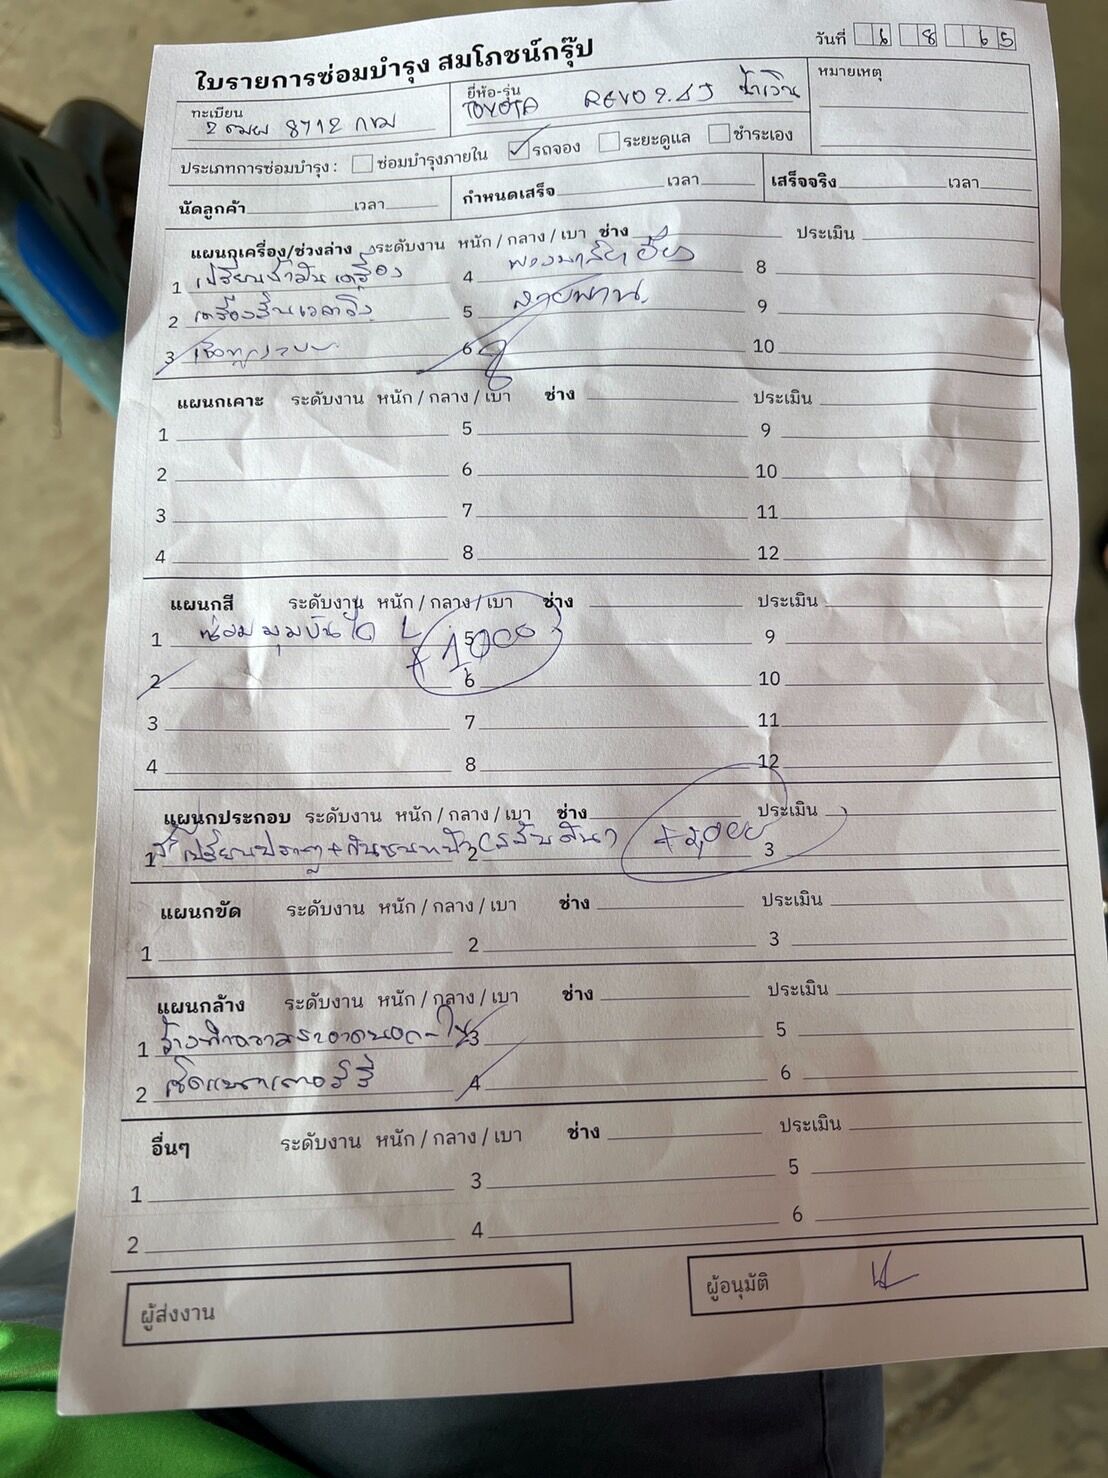 ใบรายการซ่อมบำรุง สมโภชน์กรุ๊ป
วันที่ 6 8 65
ทะเบียน 8712 กทม
ยี่ห้อ-รุ่น TOYOTA REVO 2.4J น้ำเงิน
หมายเหตุ
ประเภทการซ่อมบำรุง : ซ่อมบำรุงภายใน รถจอง ระยะดูแล ชำระเอง
นัดลูกค้า เวลา กำหนดเสร็จ เวลา เสร็จจริง เวลา
แผนกเครื่อง/ช่วงล่าง ระดับงาน หนัก / กลาง / เบา ช่าง ประเมิน
1 เปลี่ยนน้ำมันเครื่อง 4 8
2 เครื่องสั่นเวลาวิ่ง 5 สายพาน 9
3 6 10
แผนกเคาะ ระดับงาน หนัก / กลาง / เบา ช่าง ประเมิน
1 5 9
2 6 10
3 7 11
4 8 12
แผนกสี ระดับงาน หนัก / กลาง / เบา ช่าง ประเมิน
1 ซ่อมมุมบันได L 5 +1000 9
2 6 10
3 7 11
4 8 12
แผนกประกอบ ระดับงาน หนัก / กลาง / เบา ช่าง ประเมิน
1 เปลี่ยนประตู+กันชนหน้า 2 3
แผนกขัด ระดับงาน หนัก / กลาง / เบา ช่าง ประเมิน
1 2 3
แผนกล้าง ระดับงาน หนัก / กลาง / เบา ช่าง ประเมิน
1 ล้างทำความสะอาดนอก-ใน 3 5
2 เช็คแบตเตอร์รี่ 4 6
อื่นๆ ระดับงาน หนัก / กลาง / เบา ช่าง ประเมิน
1 3 5
2 4 6
ผู้ส่งงาน
ผู้อนุมัติ